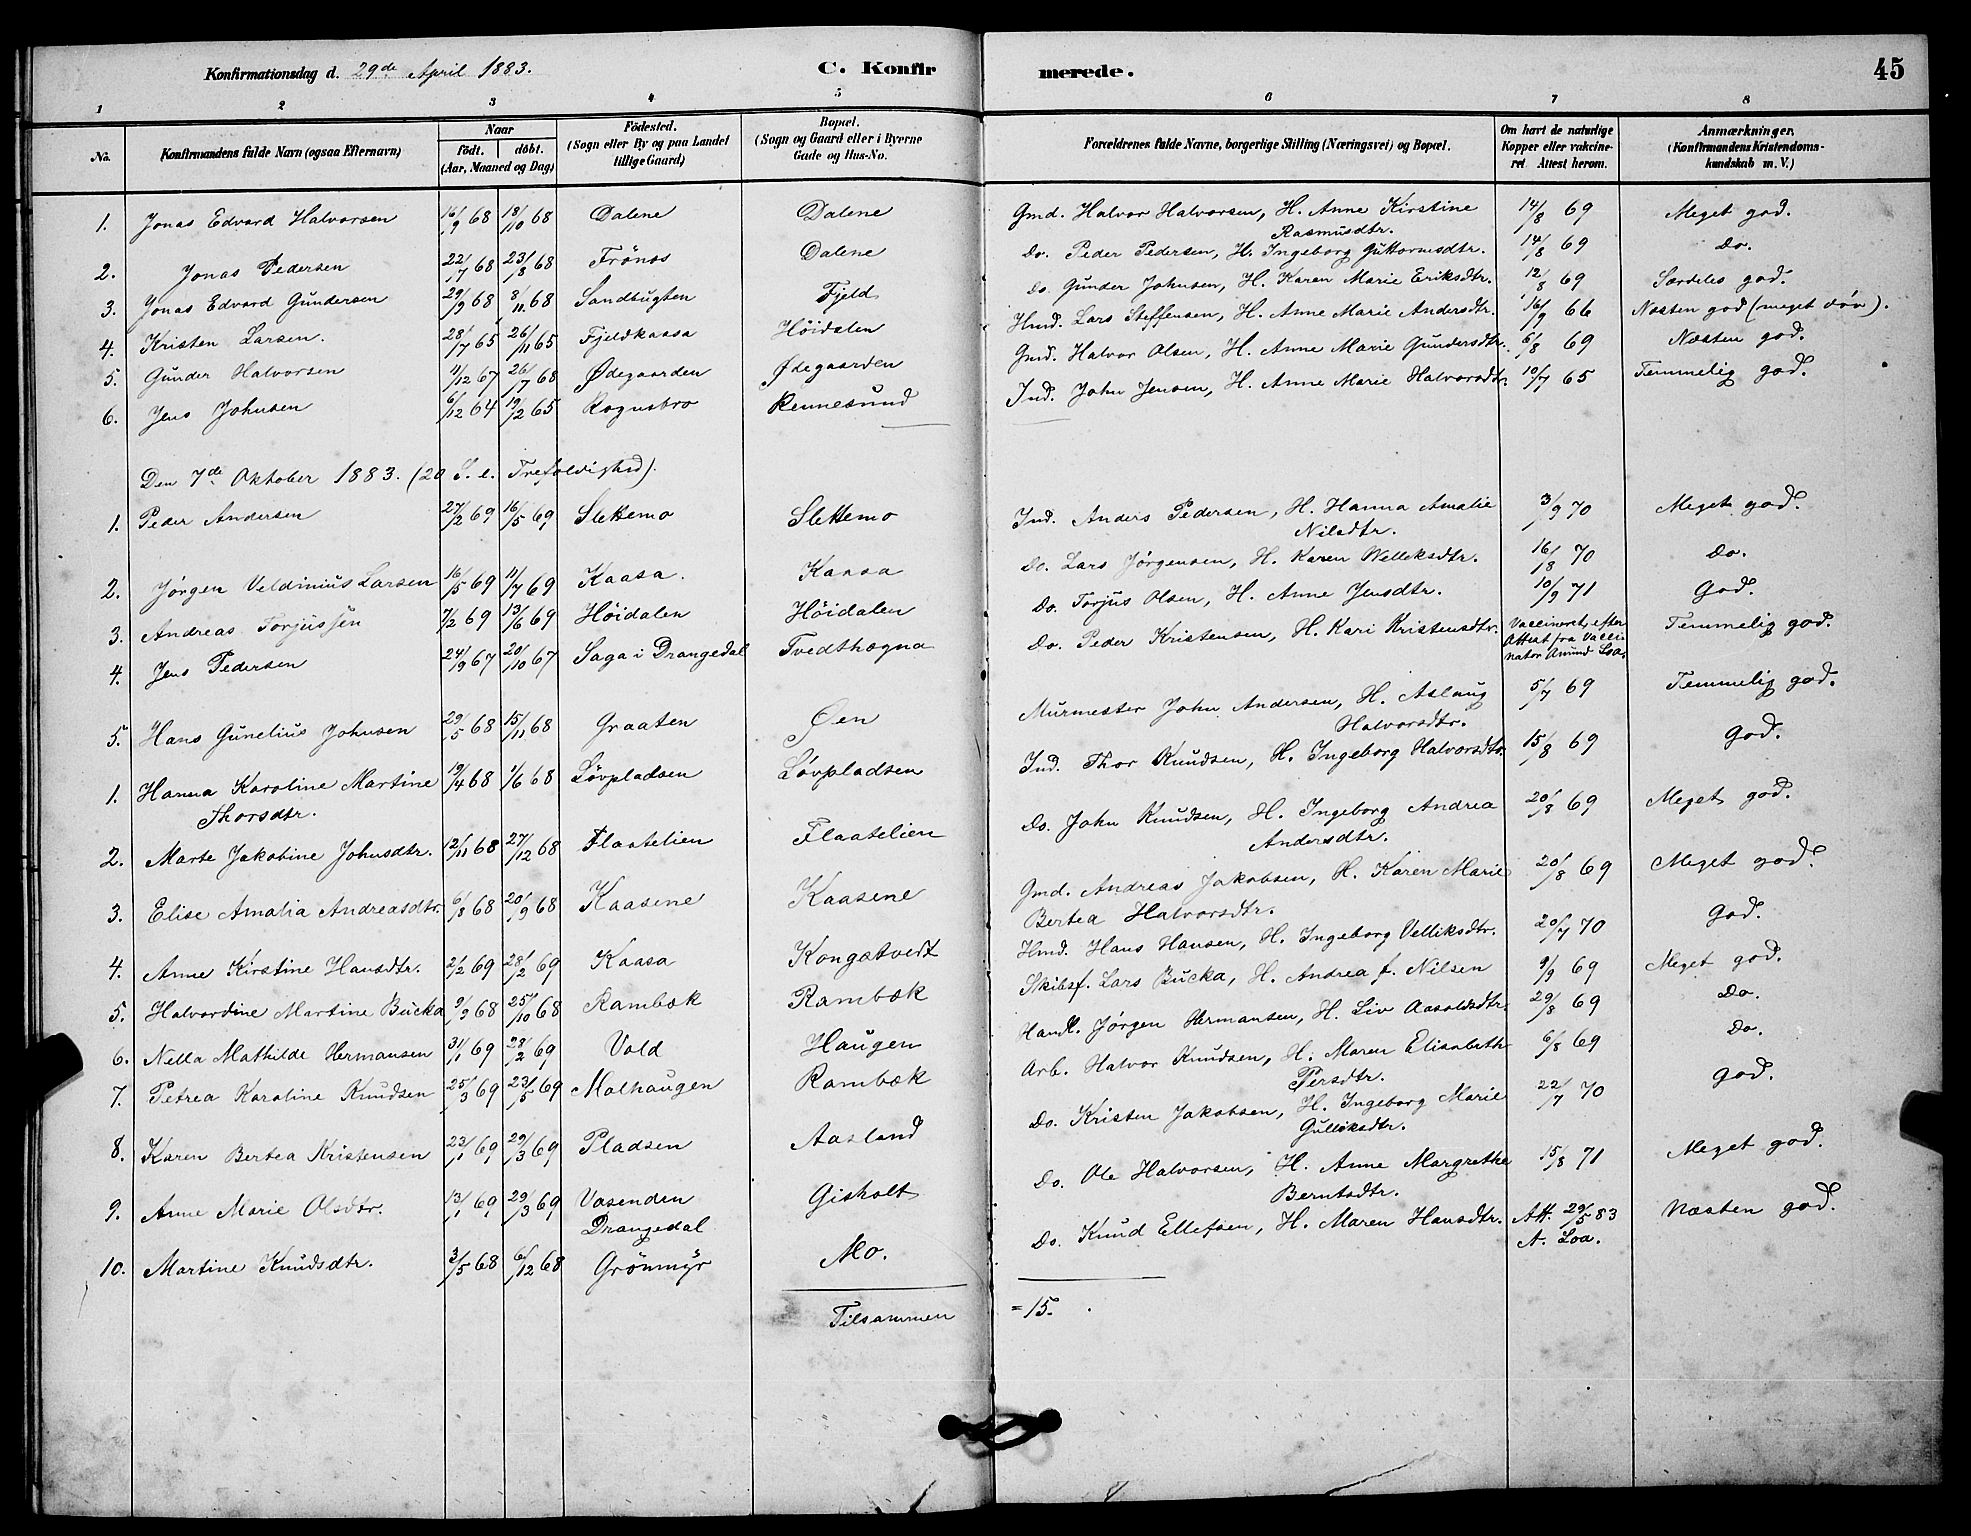 Konfirmationsdag d. 29de April 1883. C. Konfir merede. 45
1 2 3 4 5 6 7 8
No. Konfirmandens fulde Navn (ogsaa Efternavn) Naar født. døbt. (Aar, Maaned og Dag) Födested. (Sogn eller By og paa Landet tillige Gaard) Bopæl. (Sogn og Gaard eller i Byerne Gade og Hus-No. Forældrenes fulde Navne, borgerlige Stilling (Næringsvei) og Bopæl. Om havt de naturlige Kopper eller vakcineret Attest herom. Anmærkninger. (Konfirmandens Kristendomskundskab m. V.)
1. Jonas Edvard Halvorsen 16/9 68 18/10 68 Dalene Dalene Gmd. Halvor Halvorsen, H. Anne Kirstine Rasmusdtr. 14/8 69 Meget god.
2. Jonas Pedersen 22/7 68 23/8 68 Frönes Dalene Do. Peder Pedersen, H. Ingeborg Guttormsdtr. 14/8 69 Do.
3. Jonas Edvard Gundersen 29/9 68 8/11 68 Sandbugten Fjeld Do. Gunder Johnsen, H. Karen Marie Eriksdtr. 12/8 69 Særdeles god.
4. Kristen Larsen. 28/7 65 26/11 65 Fjeldkaasa Höidalen Hmd. Lars Steffensen, H. Anne Marie Andersdtr. 16/9 66 Næsten god (meget döv).
5. Gunder Halvorsen 11/12 67 26/7 68 Ødegaarden Ødegaarden Gmd. Halvor Olsen, H. Anne Marie Gundersdtr. 6/8 69 Næsten god.
6. Jens Johnsen 6/12 64 19/2 65 Rognsbro Rennesund Ind. John Jensen, H. Anne Marie Halvorsdtr. 10/7 65 Temmelig god.
Den 7de Oktober 1883. (20 S. e. Trefoldighed).
1. Peder Andersen 27/2 69 16/5 69 Slettemo Slettemo Ind. Anders Pedersen, H. Hanna Amalie Nilsdtr. 3/9 70 Meget god.
2. Jörgen Veldinius Larsen 16/5 69 11/7 69 Kaasa. Kaasa Do. Lars Jörgensen, H. Karen Velleksdtr. 16/8 70 Do.
3. Andreas Torjussen 7/2 69 13/6 69 Höidalen Höidalen Do. Torjus Olsen, H. Anne Jensdtr. 10/9 71 God.
4. Jens Pedersen 24/9 67 20/10 67 Saga i Drangedal Tvedthægna Do. Peder Kristensen, H. Kari Kristensdtr. Vaccineret efter Attest fra Vaccinator Amund Loa. Temmelig god.
5. Hans Gunelius Johnsen 29/5 68 15/11 68 Graaten Øen Murmester John Andersen, H. Aslaug Halvorsdtr. 5/7 69 Temmelig god.
1. Hanna Karoline Martine Thorsdtr. 19/4 68 1/6 68 Lövpladsen Lövpladsen Ind. Thor Knudsen, H. Ingeborg Halvorsdtr. 15/8 69 God.
2. Marte Jakobine Johnsdtr. 12/11 68 27/12 68 Flaatelien Flaatelien Do. John Knudsen, H. Ingeborg Andrea Andersdtr. 20/8 69 Meget god.
3. Elise Amalia Andreasdtr. 6/8 68 20/9 68 Kaasene Kaasene Gmd. Andreas Jakobsen, H. Karen Marie Bertea Halvorsdtr. 20/8 69 Meget god.
4. Anne Kirstine Hansdtr. 2/2 69 28/2 69 Kaasa Kongstvedt Hmd. Hans Hansen, H. Ingeborg Velliksdtr. 20/7 70 God.
5. Halvordine Martine Bucka 9/9 68 25/10 68 Rambæk Rambæk Skibsf. Lars Bucka, H. Andrea f. Nilsen 9/9 69 Meget god.
6. Nella Mathilde Hermansen 31/1 69 28/2 69 Vold Haugen Handl. Jörgen Hermansen, H. Liv Aasoldsdtr. 29/8 69 Do.
7. Petrea Karoline Knudsen 25/3 69 23/5 69 Molhaugen Rambæk Arb. Halvor Knudsen, H. Maren Elisabeth Persdtr. 6/8 69 Do.
8. Karen Bertea Kristensen 23/1 69 29/3 69 Pladsen Aasland Do. Kristen Jakobsen, H. Ingeborg Marie Gulleksdtr. 22/7 70 God.
9. Anne Marie Olsdtr. 13/1 69 29/3 69 Vasenden Drangedal Gisholt Do. Ole Halvorsen, H. Anne Margrethe Berntsdtr. 15/8 71 Meget god.
10. Martine Knudsdtr. 3/5 68 6/12 68 Grönmyr Mo. Do. Knud Ellefsen, H. Maren Hansdtr. Att. 29/5 83 A. Loa. Næsten god.
Tilsammen = 15.